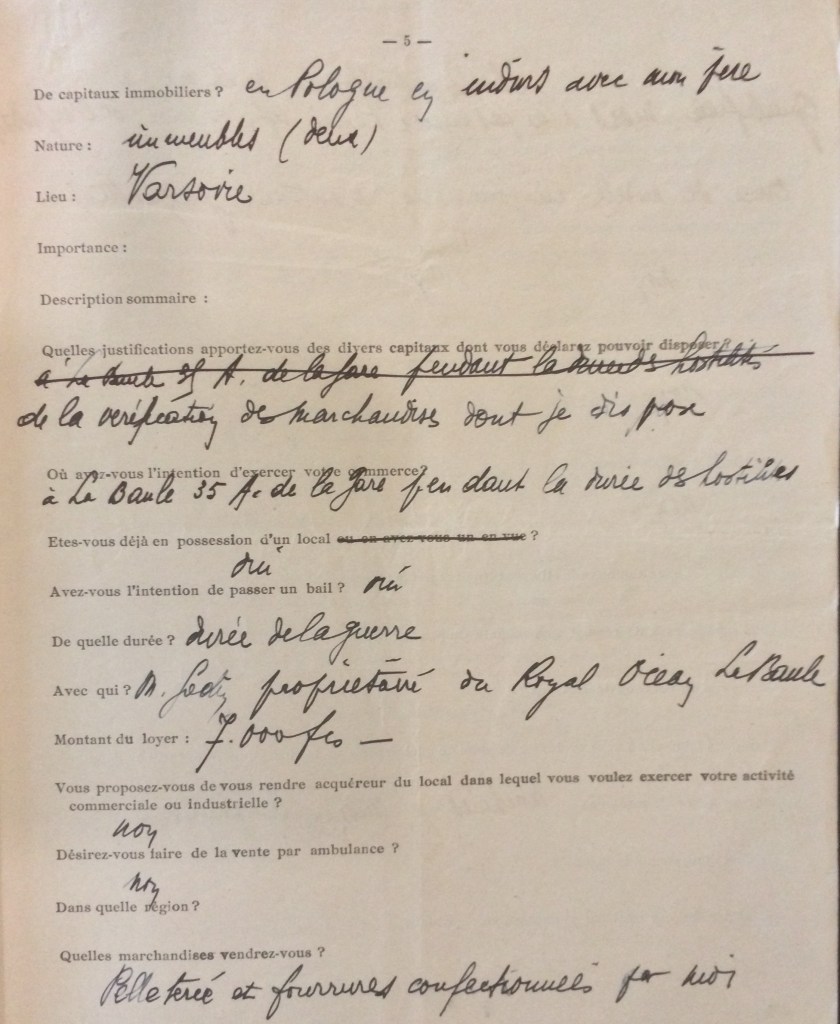 — 5 —
De capitaux immobiliers ? en Pologne en indivis avec mon père
Nature : immeubles (deux)
Lieu : Varsovie
Importance :
Description sommaire :
Quelles justifications apportez-vous des divers capitaux dont vous déclarez pouvoir disposer ?
à La Baule 35 A. de la Gare pendant la durée des hostilités
de la vérification des marchandises dont je dispose
Où avez-vous l'intention d'exercer votre commerce ?
à La Baule 35 A. de la Gare pendant la durée des hostilités
Etes-vous déjà en possession d'un local ou en avez-vous un en vue ?
oui
Avez-vous l'intention de passer un bail ? oui
De quelle durée ? durée de la guerre
Avec qui ? M. propriétaire du Royal Océan La Baule
Montant du loyer : 7.000 frs —
Vous proposez-vous de vous rendre acquéreur du local dans lequel vous voulez exercer votre activité
commerciale ou industrielle ?
non
Désirez-vous faire de la vente par ambulance ?
non
Dans quelle région ?
Quelles marchandises vendrez-vous ?
Pelleterie et fourrures confectionnées par moi